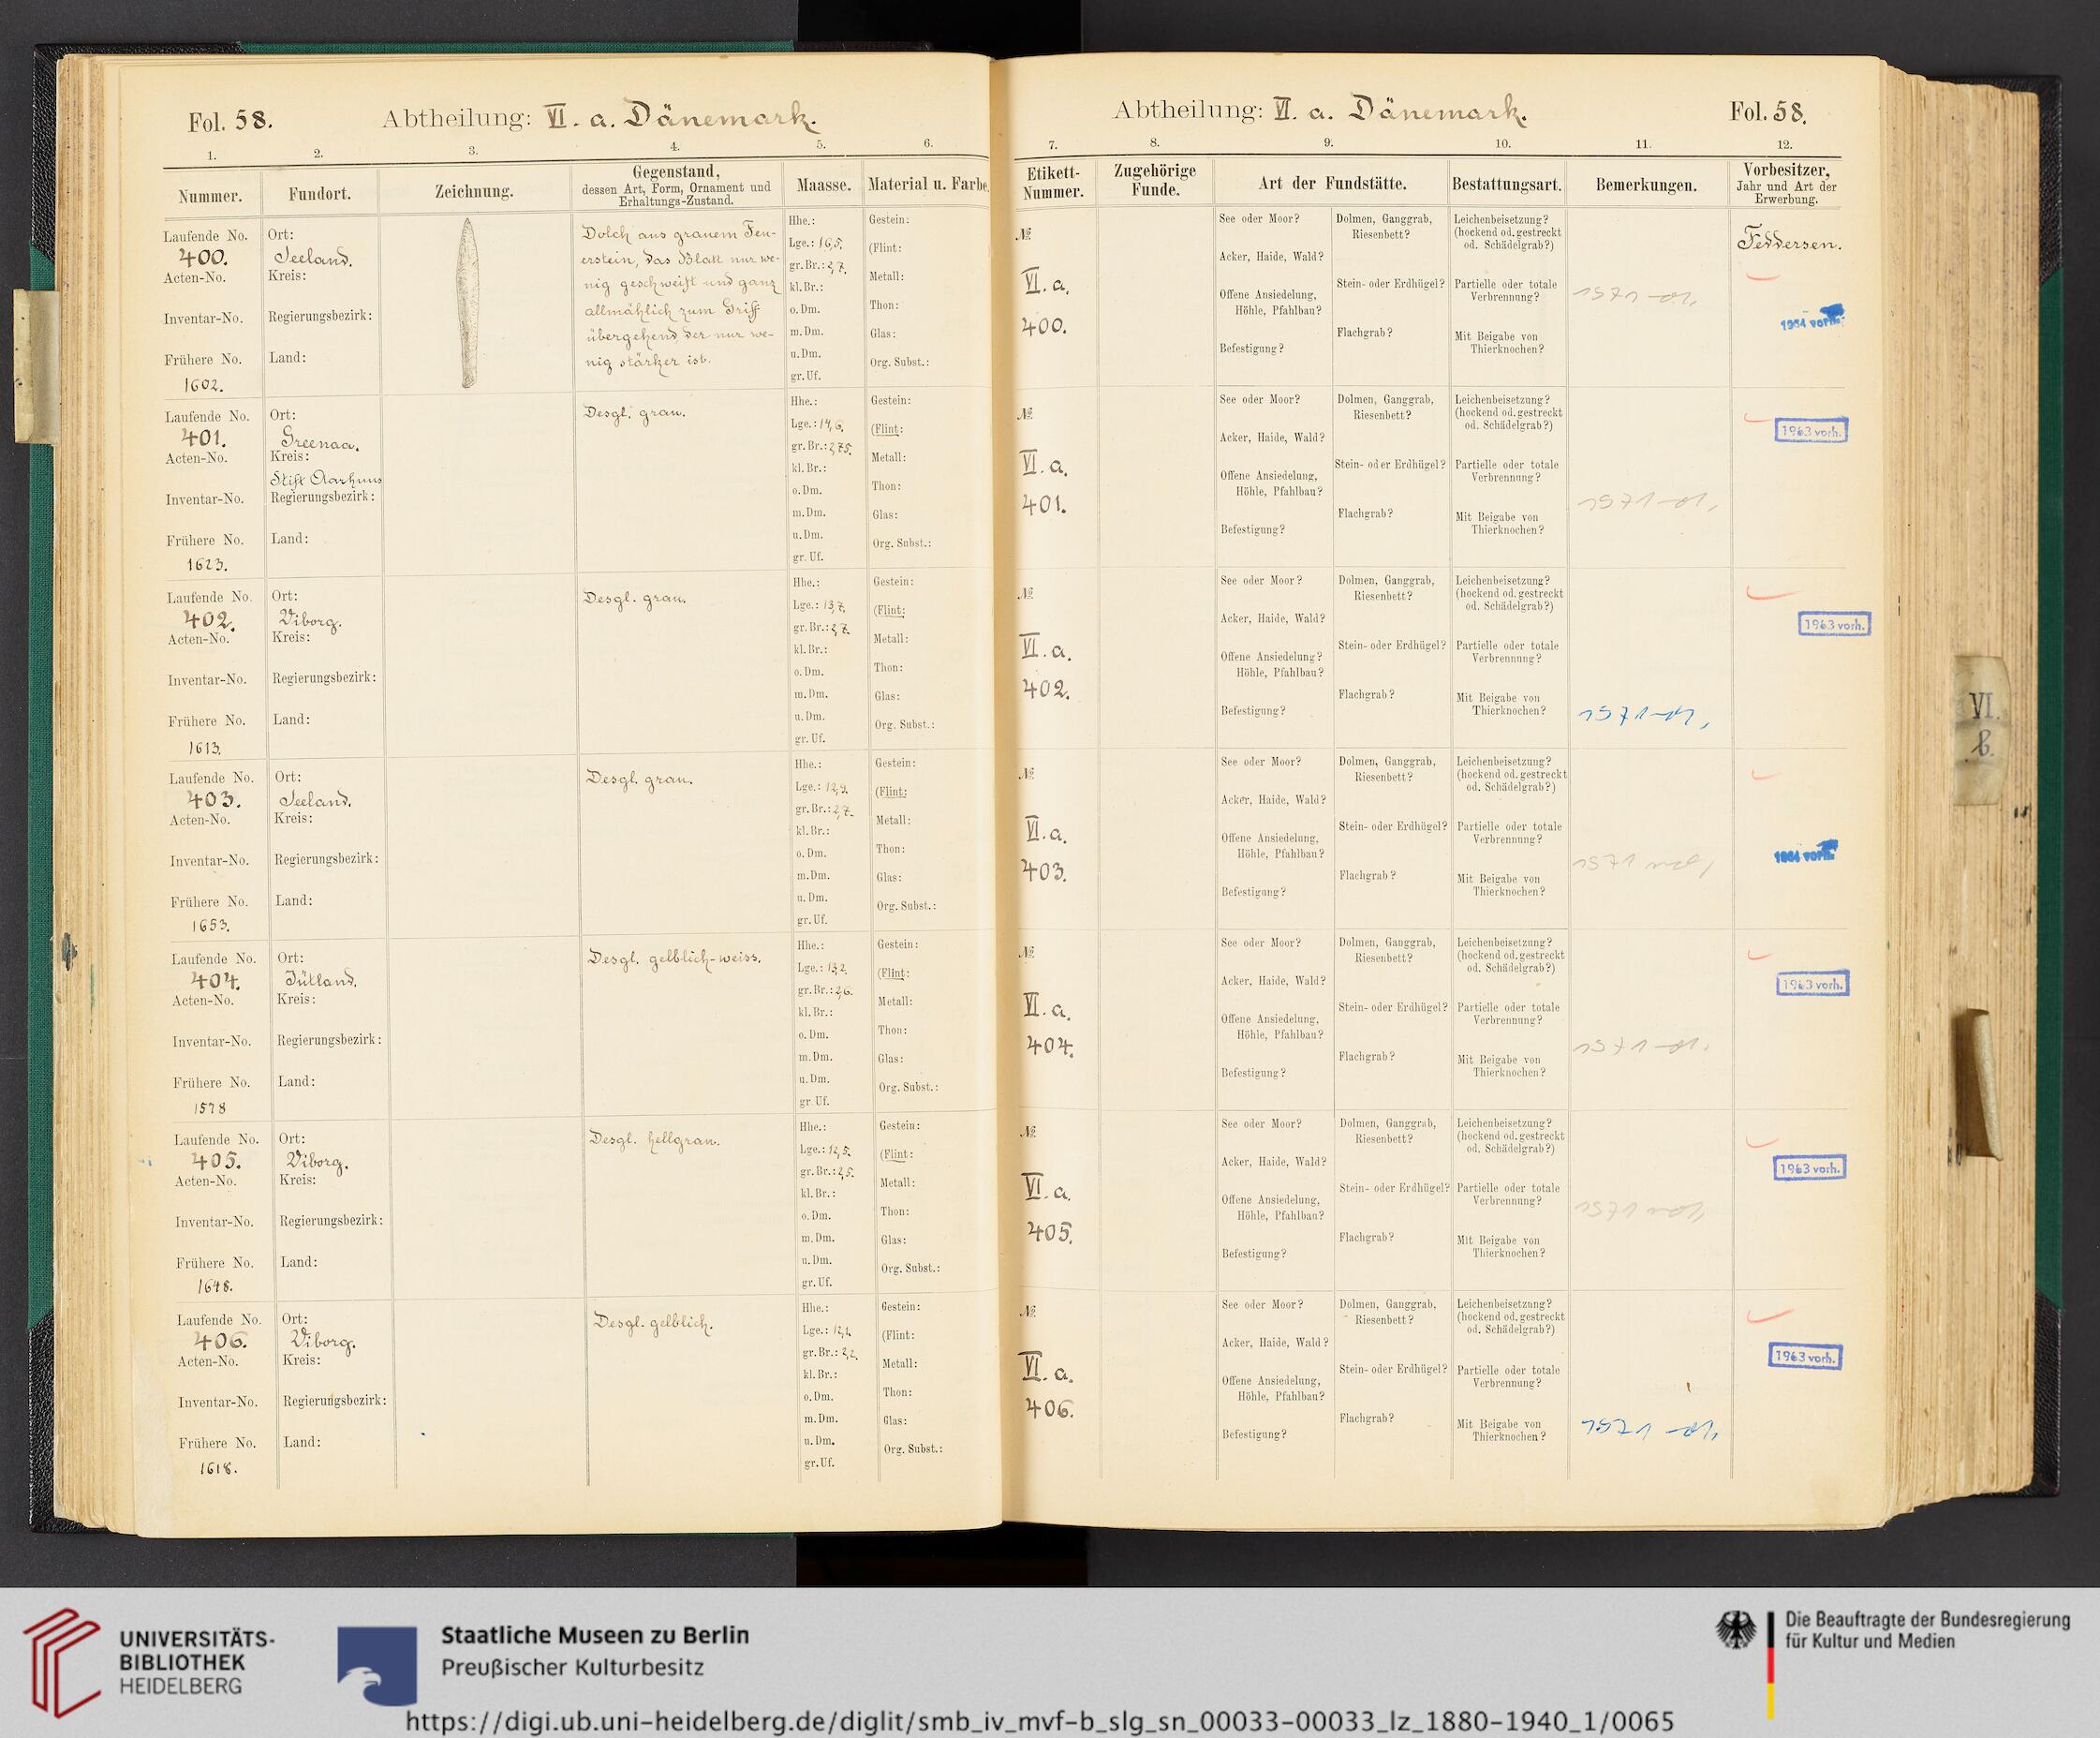 Fol. 58.
Abtheilung: VI. a. Dänemark.
1. 2. 3. 4. 5. 6.
Nummer.
Fundort.
Zeichnung.
Gegenstand,
dessen Art, Form, Ornament und
Erhaltungs-Zustand.
Maasse.
Material u. Farbe.
Laufende No.
400.
Acten-No.
Inventar-No.
Frühere No.
1602.
Ort:
Seeland.
Kreis:
Regierungsbezirk:
Land:
Dolch aus grauem Feu-
erstein, das Blatt nur we-
nig geschweift und ganz
allmählich zum Griff
übergehend, der nur we-
nig stärker ist.
Hhe.:
Lge.: 16,5.
gr. Br.: 2,7.
kl. Br.:
o. Dm.
m. Dm.
u. Dm.
gr. Uf.
Gestein:
(Flint:
Metall:
Thon:
Glas:
Org. Subst.:
Laufende No.
401.
Acten-No.
Inventar-No.
Frühere No.
1623.
Ort:
Greenaa.
Kreis:
Stift Aarhuus
Regierungsbezirk:
Land:
Desgl. grau.
Hhe.:
Lge.: 14,6.
gr. Br.: 2,75.
kl. Br.:
o. Dm.
m. Dm.
u. Dm.
gr. Uf.
Gestein:
(Flint:
Metall:
Thon:
Glas:
Org. Subst.:
Laufende No.
402.
Acten-No.
Inventar-No.
Frühere No.
1613.
Ort:
Viborg.
Kreis:
Regierungsbezirk:
Land:
Desgl. grau.
Hhe.:
Lge.: 13,7.
gr. Br.: 2,7.
kl. Br.:
o. Dm.
m. Dm.
u. Dm.
gr. Uf.
Gestein:
(Flint:
Metall:
Thon:
Glas:
Org. Subst.:
Laufende No.
403.
Acten-No.
Inventar-No.
Frühere No.
1653.
Ort:
Seeland.
Kreis:
Regierungsbezirk:
Land:
Desgl. grau.
Hhe.:
Lge.: 12,9.
gr. Br.: 2,7.
kl. Br.:
o. Dm.
m. Dm.
u. Dm.
gr. Uf.
Gestein:
(Flint:
Metall:
Thon:
Glas:
Org. Subst.:
Laufende No.
404.
Acten-No.
Inventar-No.
Frühere No.
1578
Ort:
Jütland.
Kreis:
Regierungsbezirk:
Land:
Desgl. gelblich-weiss.
Hhe.:
Lge.: 13,2.
gr. Br.: 2,6.
kl. Br.:
o. Dm.
m. Dm.
u. Dm.
gr. Uf.
Gestein:
(Flint:
Metall:
Thon:
Glas:
Org. Subst.:
Laufende No.
405.
Acten-No.
Inventar-No.
Frühere No.
1648.
Ort:
Viborg.
Kreis:
Regierungsbezirk:
Land:
Desgl. hellgrau.
Hhe.:
Lge.: 12,5.
gr. Br.: 2,5.
kl. Br.:
o. Dm.
m. Dm.
u. Dm.
gr. Uf.
Gestein:
(Flint:
Metall:
Thon:
Glas:
Org. Subst.:
Laufende No.
406.
Acten-No.
Inventar-No.
Frühere No.
1618.
Ort:
Viborg.
Kreis:
Regierungsbezirk:
Land:
Desgl. gelblich.
Hhe.:
Lge.:
gr. Br.: 2,2.
kl. Br.:
o. Dm.
m. Dm.
u. Dm.
gr. Uf.
Gestein:
(Flint:
Metall:
Thon:
Glas:
Org. Subst.:
Abtheilung: VI. a. Dänemark.
Fol. 58.
7. 8. 9. 10. 11. 12.
Etikett-
Nummer.
Zugehörige
Funde.
Art der Fundstätte.
Bestattungsart.
Bemerkungen.
Vorbesitzer,
Jahr und Art der
Erwerbung.
№
VI. a.
400.
See oder Moor?
Acker, Haide, Wald?
Offene Ansiedelung,
Höhle, Pfahlbau?
Befestigung?
Dolmen, Ganggrab,
Riesenbett?
Stein- oder Erdhügel?
Flachgrab?
Leichenbeisetzung?
(hockend od. gestreckt
od. Schädelgrab?)
Partielle oder totale
Verbrennung?
Mit Beigabe von
Thierknochen?
Feddersen.
1964 vorh.
№
VI. a.
401.
See oder Moor?
Acker, Haide, Wald?
Offene Ansiedelung,
Höhle, Pfahlbau?
Befestigung?
Dolmen, Ganggrab,
Riesenbett?
Stein- oder Erdhügel?
Flachgrab?
Leichenbeisetzung?
(hockend od. gestreckt
od. Schädelgrab?)
Partielle oder totale
Verbrennung?
Mit Beigabe von
Thierknochen?
1963 vorh.
№
VI. a.
402.
See oder Moor?
Acker, Haide, Wald?
Offene Ansiedelung?
Höhle, Pfahlbau?
Befestigung?
Dolmen, Ganggrab,
Riesenbett?
Stein- oder Erdhügel?
Flachgrab?
Leichenbeisetzung?
(hockend od. gestreckt
od. Schädelgrab?)
Partielle oder totale
Verbrennung?
Mit Beigabe von
Thierknochen?
1963 vorh.
№
VI. a.
403.
See oder Moor?
Acker, Haide, Wald?
Offene Ansiedelung,
Höhle, Pfahlbau?
Befestigung?
Dolmen, Ganggrab,
Riesenbett?
Stein- oder Erdhügel?
Flachgrab?
Leichenbeisetzung?
(hockend od. gestreckt
od. Schädelgrab?)
Partielle oder totale
Verbrennung?
Mit Beigabe von
Thierknochen?
1964 vorh.
№
VI. a.
404.
See oder Moor?
Acker, Haide, Wald?
Offene Ansiedelung,
Höhle, Pfahlbau?
Befestigung?
Dolmen, Ganggrab,
Riesenbett?
Stein- oder Erdhügel?
Flachgrab?
Leichenbeisetzung?
(hockend od. gestreckt
od. Schädelgrab?)
Partielle oder totale
Verbrennung?
Mit Beigabe von
Thierknochen?
1963 vorh.
№
VI. a.
405.
See oder Moor?
Acker, Haide, Wald?
Offene Ansiedelung,
Höhle, Pfahlbau?
Befestigung?
Dolmen, Ganggrab,
Riesenbett?
Stein- oder Erdhügel?
Flachgrab?
Leichenbeisetzung?
(hockend od. gestreckt
od. Schädelgrab?)
Partielle oder totale
Verbrennung?
Mit Beigabe von
Thierknochen?
1963 vorh.
№
VI. a.
406.
See oder Moor?
Acker, Haide, Wald?
Offene Ansiedelung,
Höhle, Pfahlbau?
Befestigung?
Dolmen, Ganggrab,
Riesenbett?
Stein- oder Erdhügel?
Flachgrab?
Leichenbeisetzung?
(hockend od. gestreckt
od. Schädelgrab?)
Partielle oder totale
Verbrennung?
Mit Beigabe von
Thierknochen?
1963 vorh.
VI.
b.
UNIVERSITÄTS-
BIBLIOTHEK
HEIDELBERG
Staatliche Museen zu Berlin
Preußischer Kulturbesitz
Die Beauftragte der Bundesregierung
für Kultur und Medien
https://digi.ub.uni-heidelberg.de/diglit/smb_iv_mvf-b_slg_sn_00033-00033_lz_1880-1940_1/0065